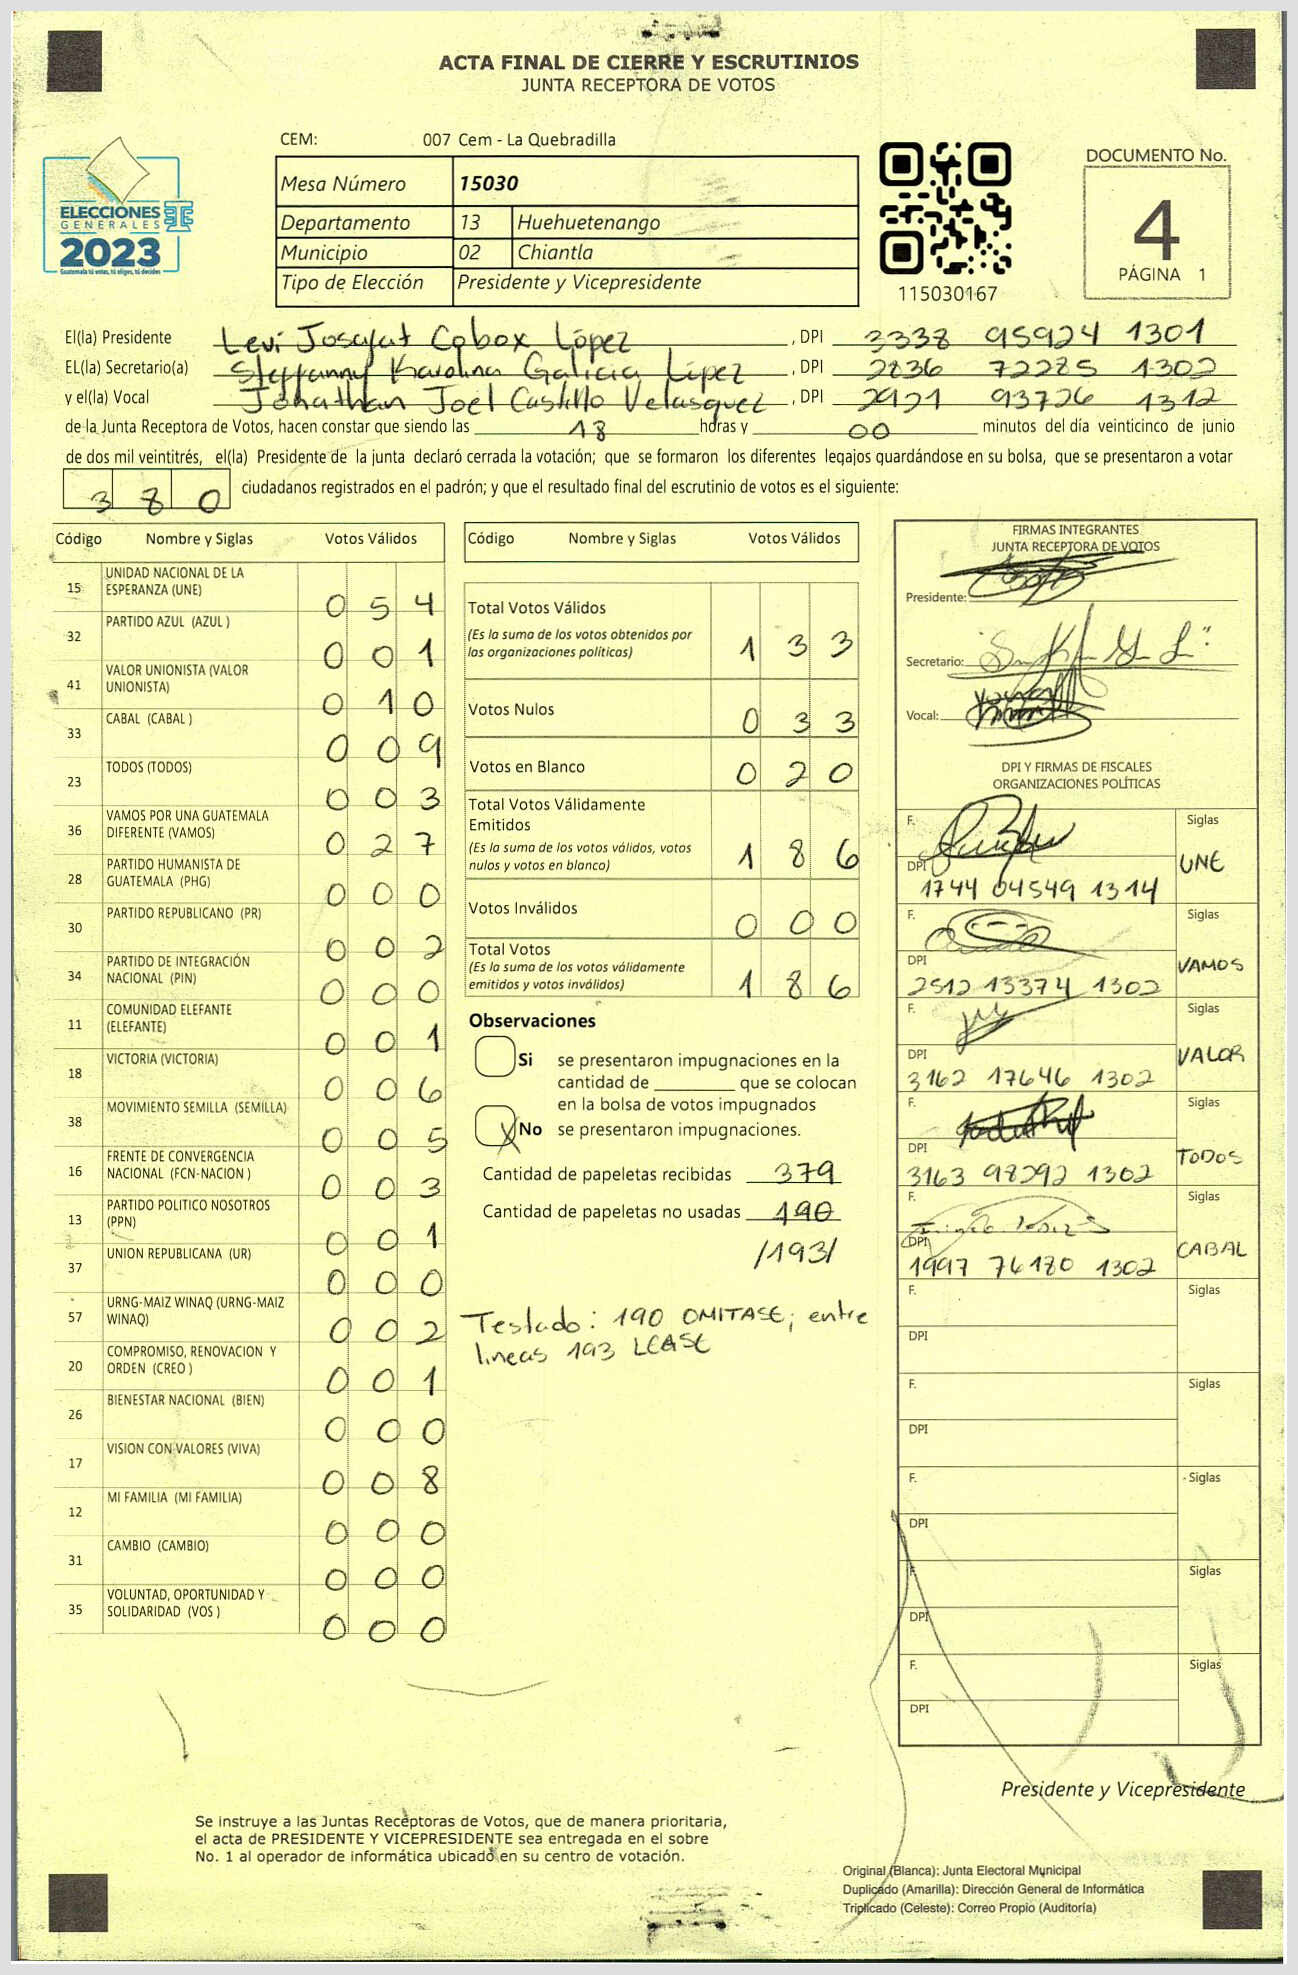 ACTA FINAL DE CIERRE Y ESCRUTINIOS
JUNTA RECEPTORA DE VOTOS
CEM: 007 Cem - La Quebradilla
Mesa Número 15030
Departamento 13 Huehuetenango
Municipio 02 Chiantla
Tipo de Elección Presidente y Vicepresidente
ELECCIONES
GENERALES
2023
Guatemala tú votas, tú eliges, tú decides
115030167
DOCUMENTO No.
4
PÁGINA 1
El(la) Presidente Levi Josafat Cobox López, DPI 3338 95924 1301
EL(la) Secretario(a) Steffanny Karolina Galicia López, DPI 2836 72285 1302
y el(la) Vocal Jonathan Joel Castillo Velasquez, DPI 2921 93726 1312
de la Junta Receptora de Votos, hacen constar que siendo las 18 horas y 00 minutos del día veinticinco de junio
de dos mil veintitrés, el(la) Presidente de la junta declaró cerrada la votación; que se formaron los diferentes legajos guardándose en su bolsa, que se presentaron a votar
380 ciudadanos registrados en el padrón; y que el resultado final del escrutinio de votos es el siguiente:
Código Nombre y Siglas Votos Válidos
15 UNIDAD NACIONAL DE LA
ESPERANZA (UNE) 054
32 PARTIDO AZUL (AZUL ) 001
41 VALOR UNIONISTA (VALOR
UNIONISTA) 010
33 CABAL (CABAL ) 009
23 TODOS (TODOS) 003
36 VAMOS POR UNA GUATEMALA
DIFERENTE (VAMOS) 027
28 PARTIDO HUMANISTA DE
GUATEMALA (PHG) 000
30 PARTIDO REPUBLICANO (PR) 002
34 PARTIDO DE INTEGRACIÓN
NACIONAL (PIN) 000
11 COMUNIDAD ELEFANTE
(ELEFANTE) 001
18 VICTORIA (VICTORIA) 006
38 MOVIMIENTO SEMILLA (SEMILLA) 005
16 FRENTE DE CONVERGENCIA
NACIONAL (FCN-NACION ) 003
13 PARTIDO POLITICO NOSOTROS
(PPN) 001
37 UNION REPUBLICANA (UR) 000
57 URNG-MAIZ WINAQ (URNG-MAIZ
WINAQ) 002
20 COMPROMISO, RENOVACION Y
ORDEN (CREO ) 001
26 BIENESTAR NACIONAL (BIEN) 000
17 VISION CON VALORES (VIVA) 008
12 MI FAMILIA (MI FAMILIA) 000
31 CAMBIO (CAMBIO) 000
35 VOLUNTAD, OPORTUNIDAD Y
SOLIDARIDAD (VOS ) 000
Código Nombre y Siglas Votos Válidos
Total Votos Válidos
(Es la suma de los votos obtenidos por
las organizaciones políticas) 133
Votos Nulos 033
Votos en Blanco 020
Total Votos Válidamente
Emitidos
(Es la suma de los votos válidos, votos
nulos y votos en blanco) 186
Votos Inválidos 000
Total Votos
(Es la suma de los votos válidamente
emitidos y votos inválidos) 186
Observaciones
Si se presentaron impugnaciones en la
cantidad de ________ que se colocan
en la bolsa de votos impugnados
X No se presentaron impugnaciones.
Cantidad de papeletas recibidas 379
Cantidad de papeletas no usadas 190
/193/
Testado: 190 OMITASE; entre
lineas 193 LEASE
FIRMAS INTEGRANTES
JUNTA RECEPTORA DE VOTOS
Presidente:
Secretario:
Vocal:
DPI Y FIRMAS DE FISCALES
ORGANIZACIONES POLÍTICAS
F. Siglas
DPI UNE
1744 04549 1314
F. Siglas
DPI VAMOS
2512 13374 1302
F. Siglas
DPI VALOR
3162 17646 1302
F. Siglas
DPI TODOS
3163 98292 1302
F. Siglas
DPI CABAL
1997 76180 1302
F. Siglas
DPI
F. Siglas
DPI
F. Siglas
DPI
F. Siglas
DPI
F. Siglas
DPI
Presidente y Vicepresidente
Se instruye a las Juntas Receptoras de Votos, que de manera prioritaria,
el acta de PRESIDENTE Y VICEPRESIDENTE sea entregada en el sobre
No. 1 al operador de informática ubicado en su centro de votación.
Original (Blanca): Junta Electoral Municipal
Duplicado (Amarilla): Dirección General de Informática
Triplicado (Celeste): Correo Propio (Auditoría)